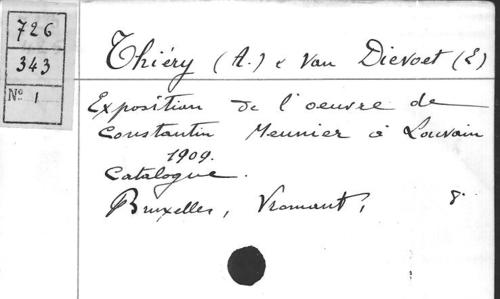 726
343
N° 1
Thiéry (A.) & Van Dievoet (E)
Exposition de l'oeuvre de
Constantin Meunier à Louvain
1909.
Catalogue.
Bruxelles, Vromant, 8°